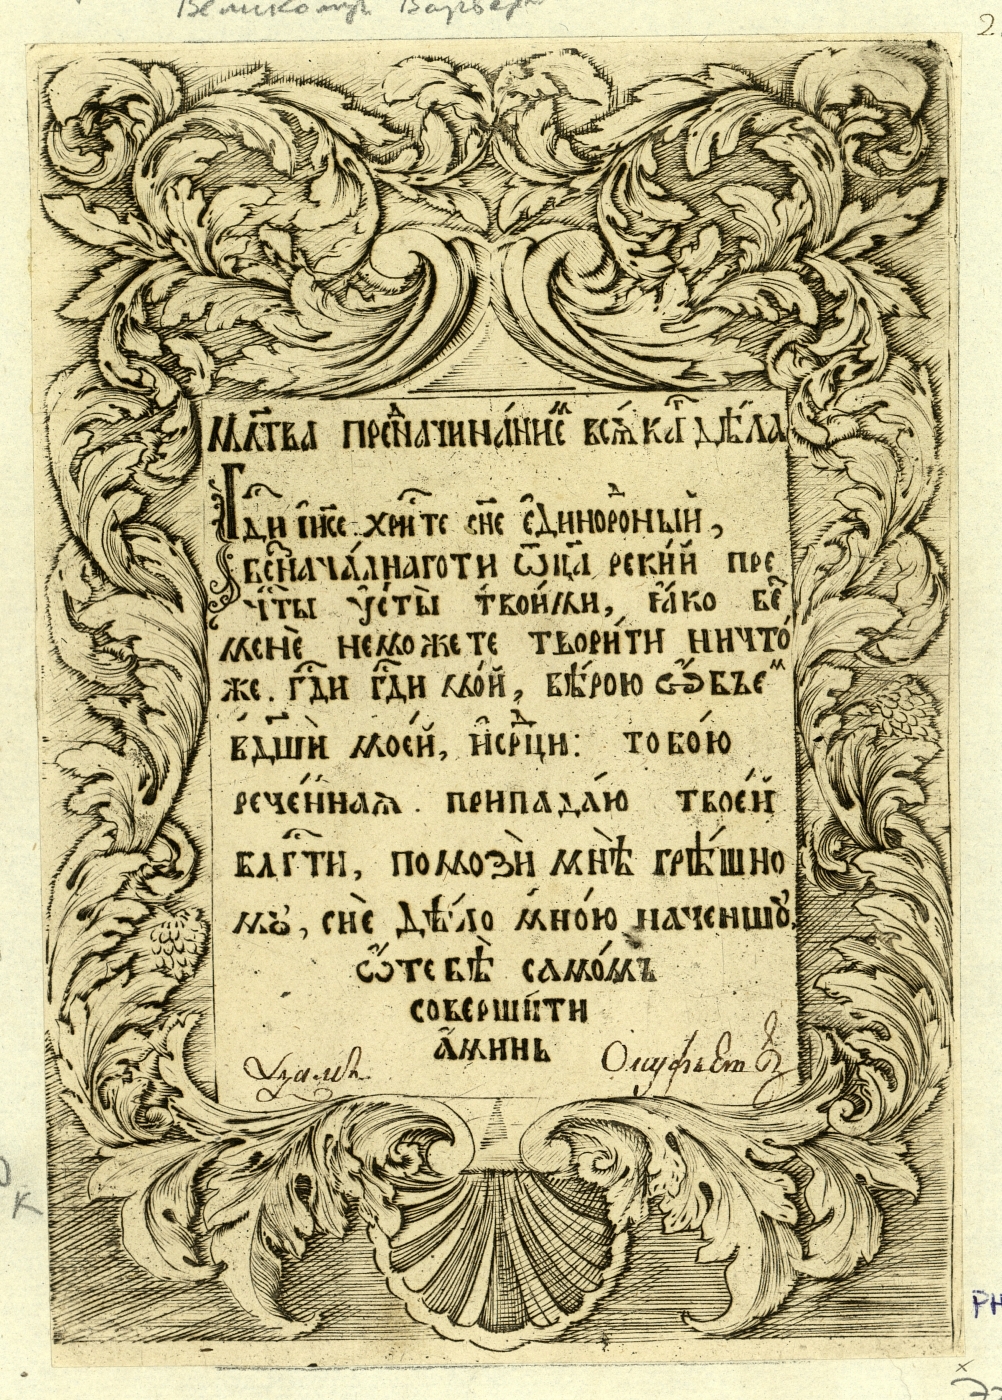 Великому
2
МЛ҃ТВА ПРЕⷣНАЧИНА́НИЕⷨ ВСѦ́КАГ҃ ДѢЛА
Гⷭ҇ДИ І҆И҃СЕ ХРⷭ҇ТЕ СН҃Е Е҆ДИНОРОⷣНЫЙ,
БЕЗНАЧА́ЛНАГО ТИ Ѿ҆ЦА̀ РЕКИ́Й ПРЕ
Чⷭ҇ТЫ ᲂУ҆СТЫ̀ ТВОИ́МИ, Ꙗ҆́КО БЕ
МЕНЀ НЕМОЖЕТЕ ТВОРИ́ТИ НИЧТО́
ЖЕ. Гⷭ҇ДИ Гⷭ҇ДИ МО́Й, ВѢ́РОЮ Ѡ҆БЪЕⷨ
В ДШ҃Ѝ МОЕ́Й, И҆ СЕРⷣЦИ: ТОБО́Ю
РЕЧЕ́ННАѦ. ПРИПАДА́Ю ТВОЕ́Й
БЛГⷭ҇ТИ, ПОМОЗѝ МНѢ̀ ГРѢ́ШНО
МꙊ, СИЀ ДѢ́ЛО МНО́Ю НАЧЕНШꙊ,
Ѡ҆ ТЕБѢ̀ САМО́МЪ
СОВЕРШИ́ТИ
А҆МИНЬ